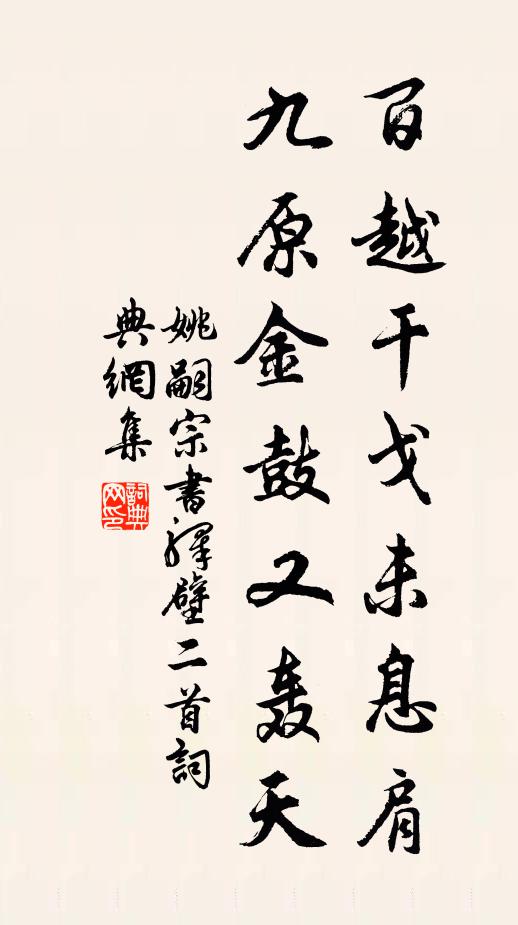 百越干戈未息肩
九原金鼓又轰天
姚嗣宗書驛壁二首詞
典網集
詞典
网印